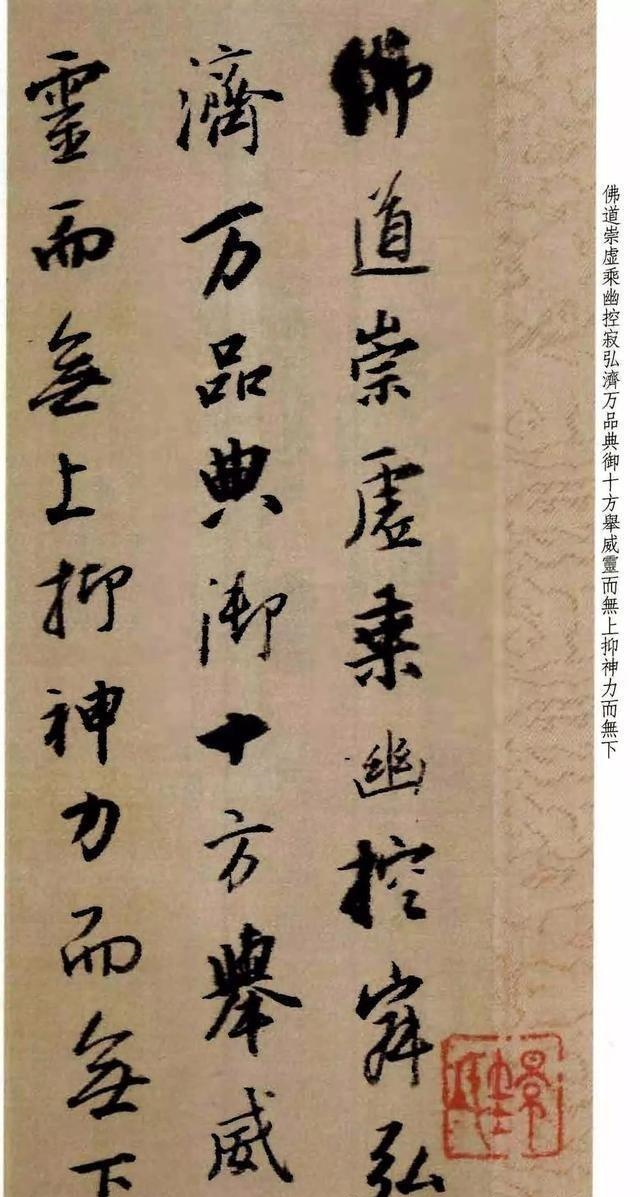 佛道崇虛乘幽控寂弘
濟万品典御十方舉威
靈而無上抑神力而無下
佛道崇虛乘幽控寂弘濟万品典御十方舉威靈而無上抑神力而無下